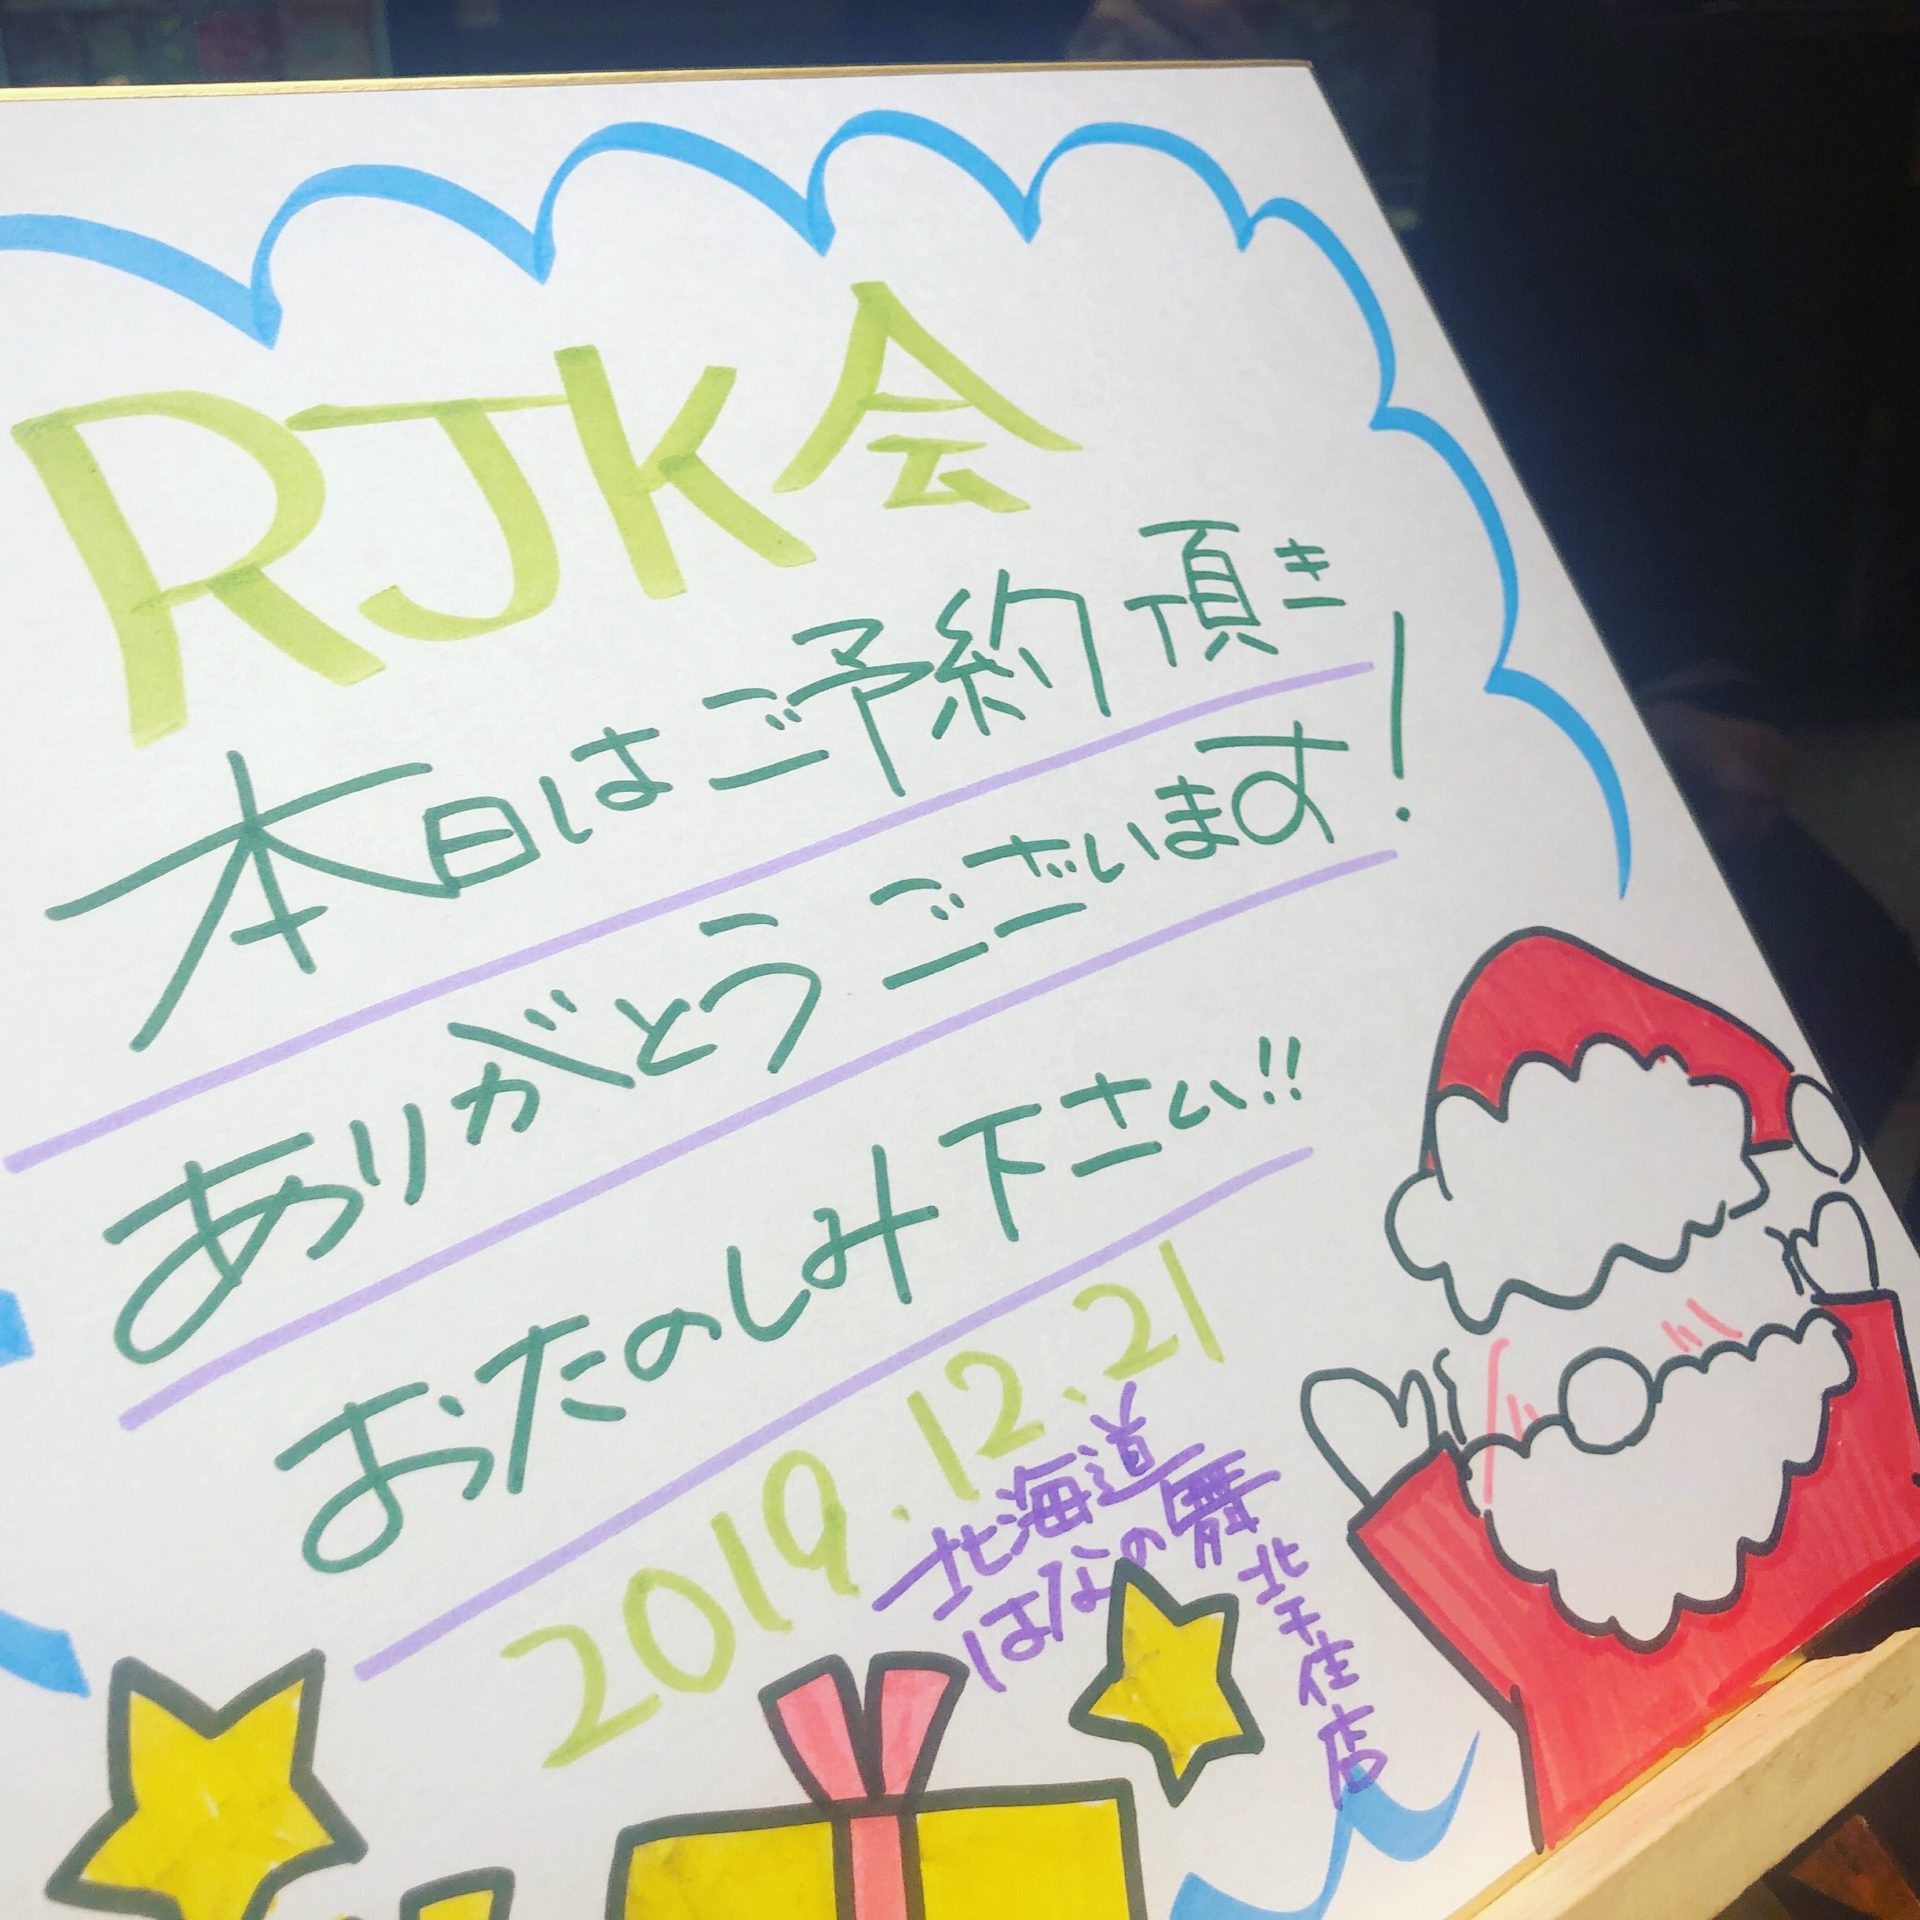 RJK会
本日はご予約頂き
ありがとうございます!
おたのしみ下さい!!
2019.12.21
北海道
はなの舞
北千住店